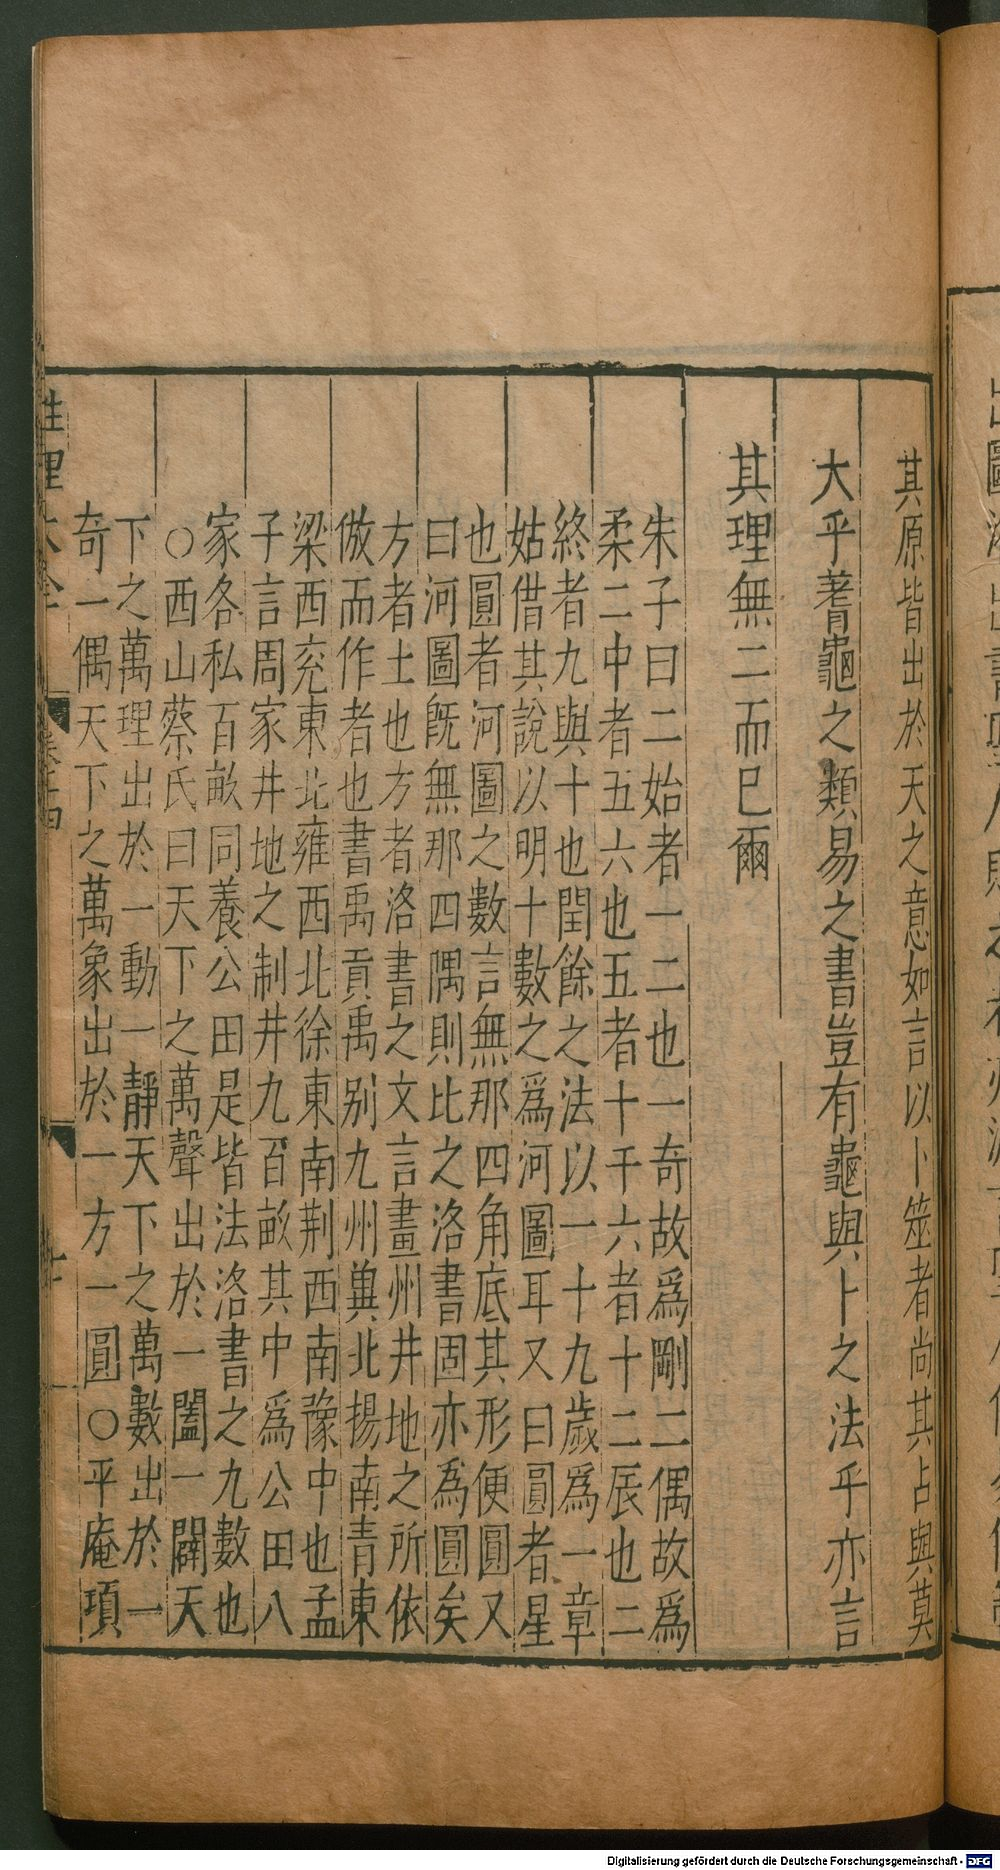 其原皆出於天之意如言以卜筮者尚其占與莫
大乎蓍龜之類易之書豈有龜與卜之法乎亦言
其理無二而已爾
朱子曰二始者一二也一奇故爲剛二偶故爲
柔二中者五六也五者十干六者十二辰也二
終者九與十也閏餘之法以一十九歲爲一章
姑借其說以明十數之爲河圖耳又曰圓者星
也圓者河圖之數言無那四角底其形便圓又
曰河圖旣無那四隅則比之洛書固亦爲圓矣
方者土也方者洛書之文言畫州井地之所依
倣而作者也書禹貢禹别九州冀北揚南青東
梁西兖東北雍西北徐東南荆西南豫中也孟
子言周家井地之制井九百畝其中爲公田八
家各私百畝同養公田是皆法洛書之九數也
○西山蔡氏曰天下之萬聲出於一闔一闢天
下之萬理出於一動一靜天下之萬數出於一
奇一偶天下之萬象出於一方一圓○平庵項
性理大全
卷十四
Digitalisierung gefördert durch die Deutsche Forschungsgemeinschaft - DFG